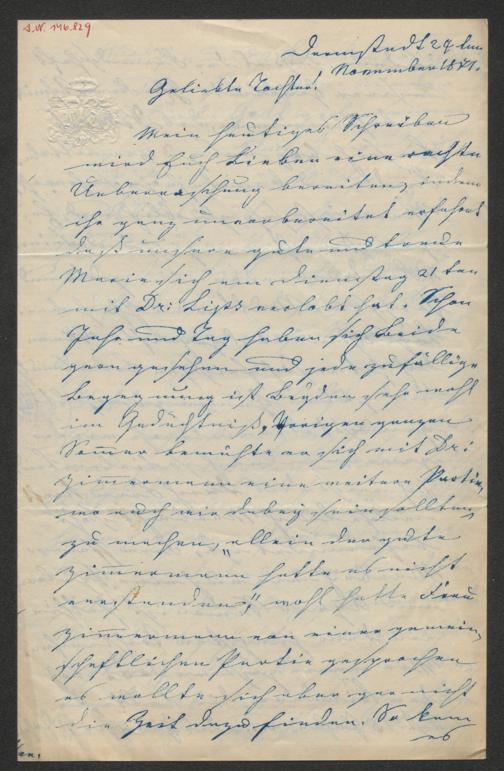 A.N. 146.829
Darmstadt 29ten
November 1871.
Geliebte Tochter!
Mein heutiges Schreiben
wird Euch Lieben eine rechte
Ueberraschung bereiten, indem
ihr ganz unvorbereitet erfahret
daß unsere gute und treue
Marie sich am Dienstag 21ten
mit Dr: Lips verlobt hat. Schon
Jahr und Tag haben sich Beide
gern gesehen und jede zufällige
Begegnung ist Beyden sehr wohl
im Gedächtniß. Vorigen ganzen
Sommer bemühte er sich mit Dr:
Zimmermann eine weitere Partie,
wo auch wir dabey sein sollten,
zu machen, "allein der gute
Zimmermann hatte es nicht
verstanden", wohl hatte Frau
Zimmermann von einer gemein-
schaftlichen Partie gesprochen
es wollte sich aber gar nicht
die Zeit dazu finden. So kam
es